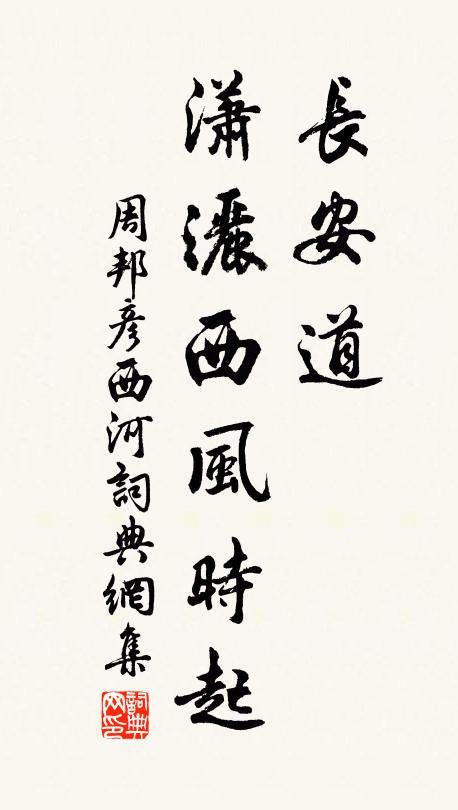 長安道
瀟灑西風時起
周邦彦西河詞典網集
詞典网印